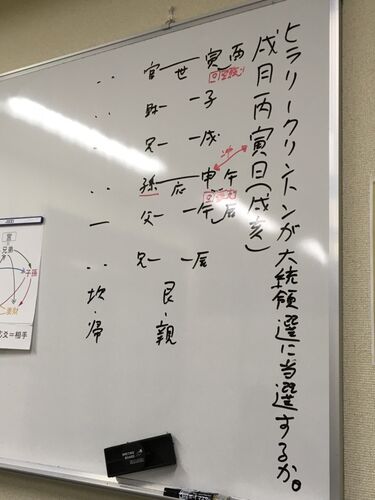 ヒラリークリントンが大統領選に当選するか。
戌月丙寅日(戌亥)
官 世 寅 酉
財 子
兄 戌
冲
孫 応 申 午
父 午 辰
兄 辰
艮・親
坎・帰
兄弟
子孫
妻財
応爻=相手